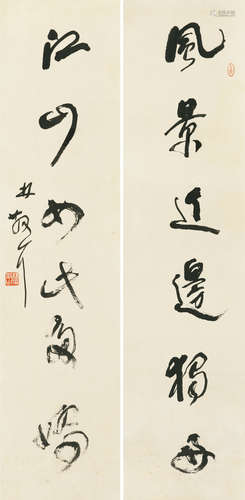 風景這邊獨好
江山如此多嬌
林散耳